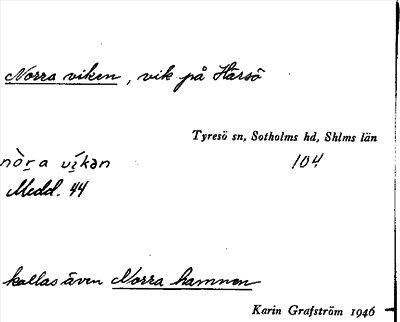 Norra viken, vik på Hårsö
Tyresö sn, Sotholms hd, Shlms län
nòr̲a ví̲kən 104
Medd. 44
kallas även Norra hamnen
Karin Grafström 1946